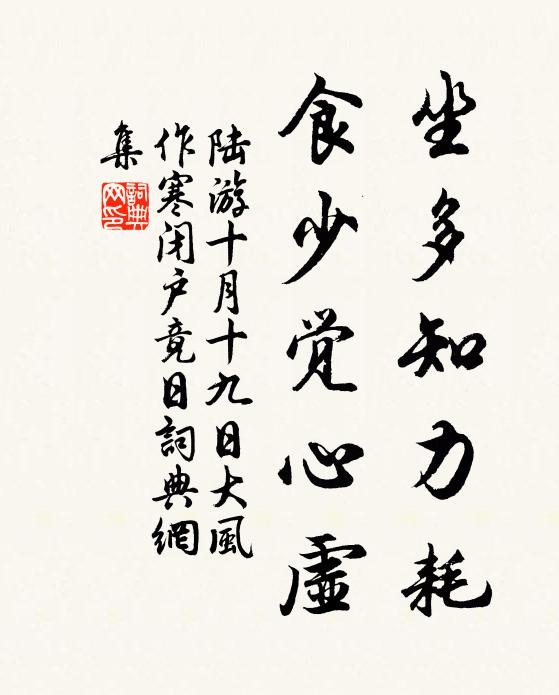 坐多知力耗
食少觉心虚
陆游十月十九日大風
作寒闭户竟日詞典網
集
詞典
网印